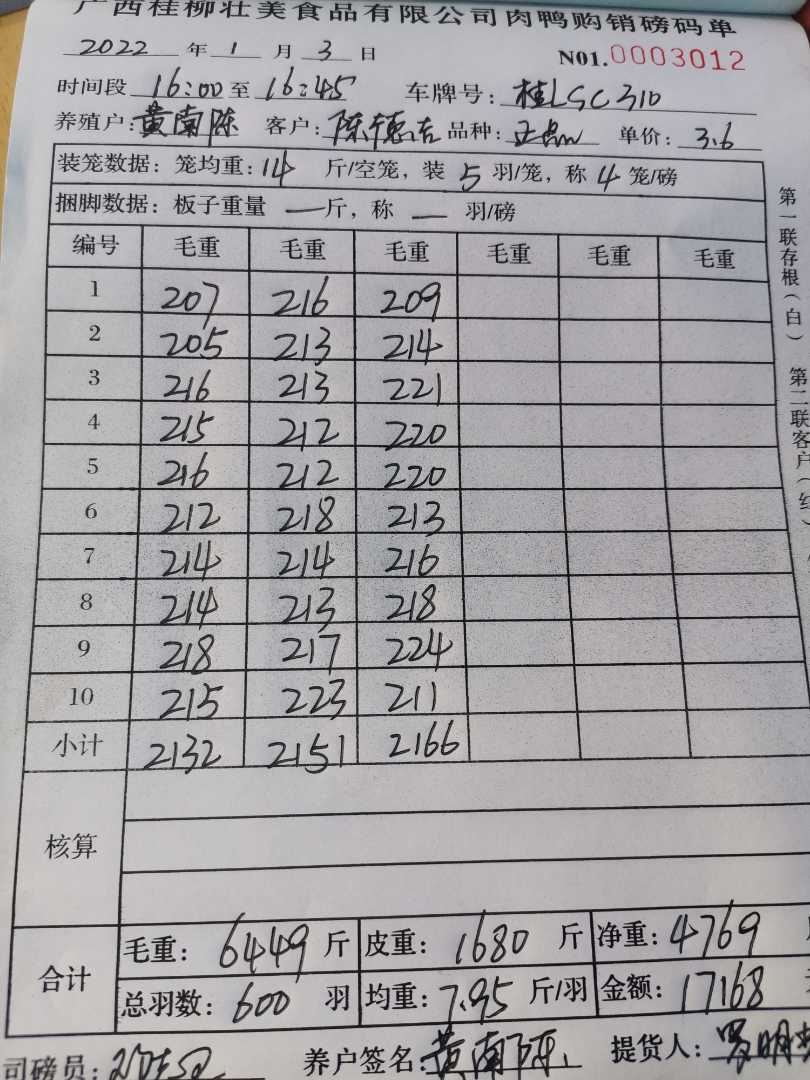 广西桂柳壮美食品有限公司肉鸭购销磅码单
2022 年 1 月 3 日 N01.0003012
时间段 16:00 至 16:45 车牌号: 桂LSC310
养殖户: 黄南陈 客户: 陈德吉 品种: 单价: 3.6
装笼数据: 笼均重: 14 斤/空笼, 装 5 羽/笼, 称 4 笼/磅
捆脚数据: 板子重量 — 斤, 称 — 羽/磅
编号 毛重 毛重 毛重 毛重 毛重 毛重
1 207 216 209
2 205 213 214
3 216 213 221
4 215 212 220
5 216 212 220
6 212 218 213
7 214 214 216
8 214 213 218
9 218 217 224
10 215 223 211
小计 2132 2151 2166
核算
合计
毛重: 6449 斤 皮重: 1680 斤 净重: 4769
总羽数: 600 羽 均重: 7.95 斤/羽 金额: 17168
司磅员: 养户签名: 黄南陈 提货人:
第一联存根(白) 第二联客户(红)